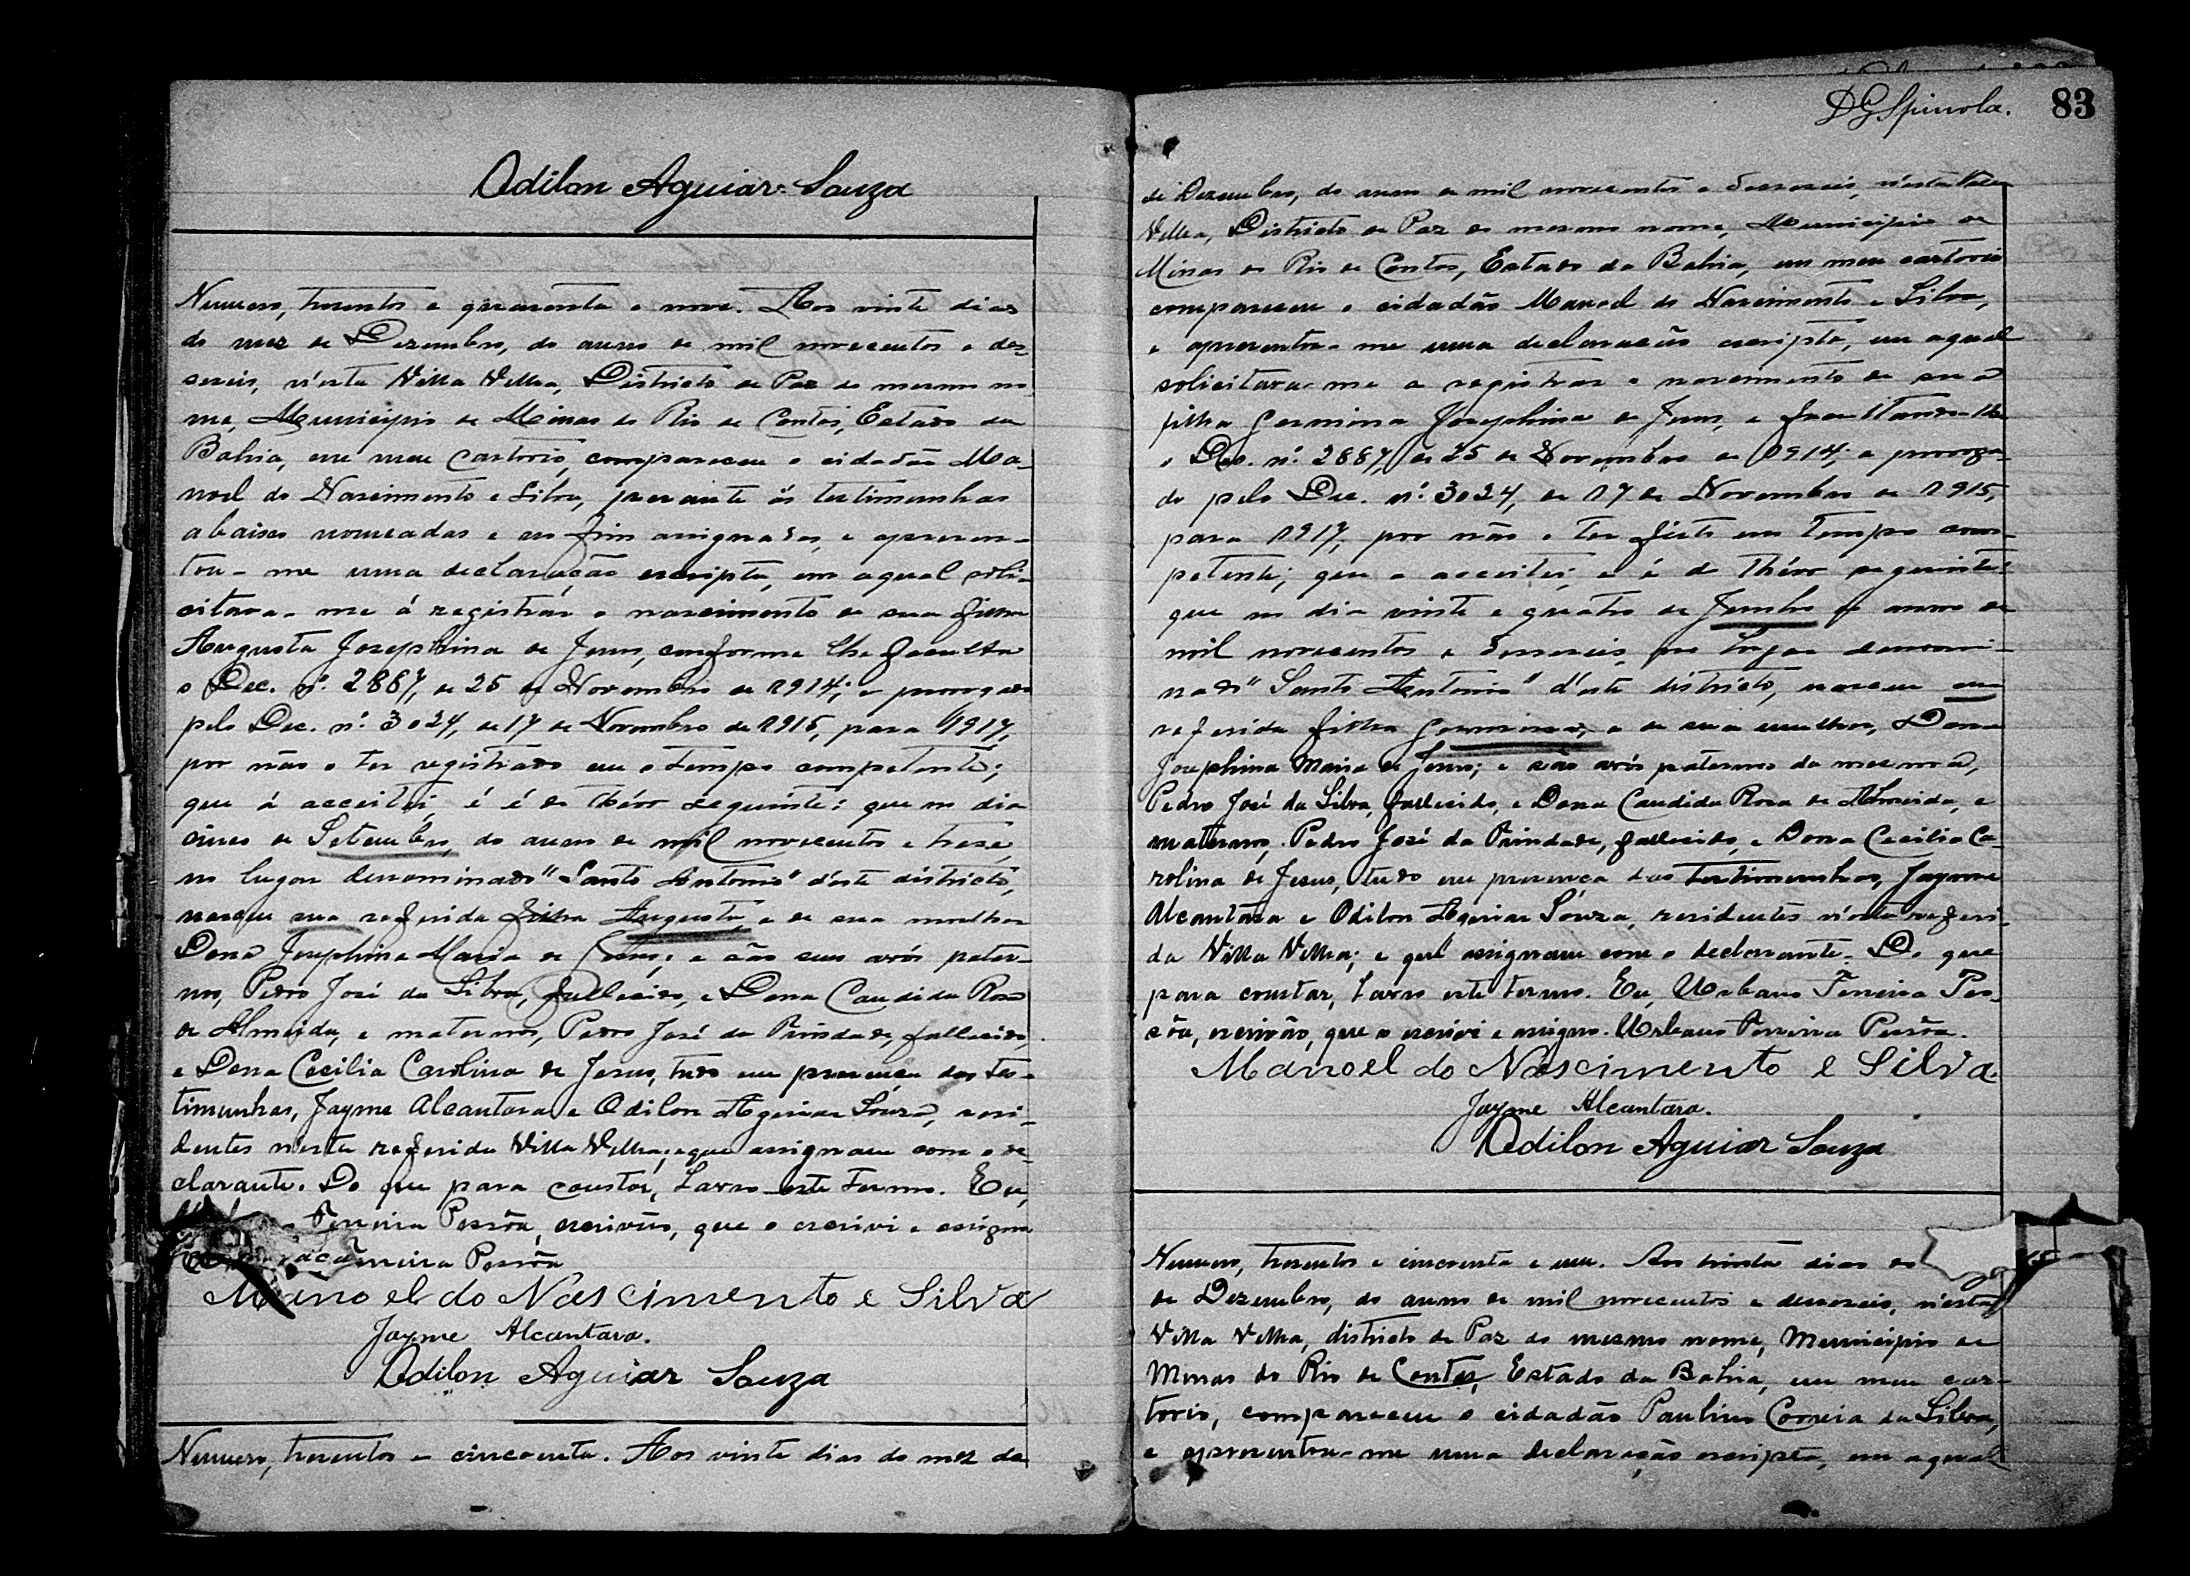 Odilon Aguiar Souza
Numero, tresentos e quarenta e nove. Aos vinte dias
do mez de Dezembro, do anno de mil novecentos e des-
seseis, n'esta Villa Velha, Districto de Paz do mesmo no-
me, Municipio de Minas do Rio de Contas, Estado da
Bahia, em meu cartorio, compareceu o cidadão Ma-
noel do Nascimento e Silva, perante ás testimunhas
abaixo nomeadas e no fim assignadas, e apresen-
tou-me uma declaração escripta, em aqual soli-
citava-me á registrar o nascimento de sua filha
Augusta Josephina de Jesus, conforme lhe faculta
o Dec. nº. 2887, de 25 de Novembro de 1914; e prorogado
pelo Dec. nº. 3024, de 17 de Novembro de 1915, para 1917,
por não o ter registrado em o tempo competente;
que á acceitei, é é do théor seguinte: que no dia
cinco de Setembro, do anno de mil novecentos e treze,
no lugar denominado "Santo Antonio" d'este districto,
nasceu sua referida filha Augusta, e de sua mulher
Dona Josephina Maria de Jesus; e são seus avós pater-
nos, Pedro José da Silva, fallecido, e Dona Candida Rosa
de Almeida, e maternos, Pedro José da Trindade, fallecido,
e Dona Cecilia Carolina de Jesus, tudo em presença das tes-
timunhas, Jayme Alcantara e Odilon Aguiar Souza, resi-
dentes n'esta referida Villa Velha; e que assignam com o de-
clarante. Do que para constar, lavro este termo. Eu,
Ferreira Pessôa, escrivão, que o escrivi e assigno
Ferreira Pessôa
Manoel do Nascimento e Silva
Jayme Alcantara.
Odilon Aguiar Souza
Numero, tresentos e cincoenta. Aos vinte dias do mez de
DGSpinola. 83
de Dezembro, do anno de mil novecentos e desseseis, n'esta Villa
Velha, Districto de Paz do mesmo nome, Municipio de
Minas do Rio de Contas, Estado da Bahia, em meu cartorio
compareceu o cidadão Manoel do Nascimento e Silva,
e apresentou-me uma declaração escripta, em aqual
solicitava-me a registrar o nascimento de sua
filha Germina Josephina de Jesus, e facultando-lhe
o Dec. nº. 2887, de 25 de Novembro de 1914; e proroga-
do pelo Dec. nº. 3024, de 17 de Novembro de 1915,
para 1917, por não o ter feito em tempo com-
petente; que a acceitei, e é do théor seguinte:
que no dia vinte e quatro de Junho do anno de
mil novecentos e desseseis, no lugar denomi-
nado "Santo Antonio" d'este districto, nasceu sua
referida filha Germina, e de sua mulher, Dona
Josephina Maria de Jesus; e são avós paternos da mesma,
Pedro José da Silva, fallecido, e Dona Candida Rosa de Almeida, e
maternos, Pedro José da Trindade, fallecido, e Dona Cecilia Ca-
rolina de Jesus, tudo em presença das testimunhas, Jayme
Alcantara e Odilon Aguiar Souza, residentes n'esta referi-
da Villa Velha; e que assignam com o declarante. Do que
para constar, lavro este termo. Eu, Urbano Ferreira Pes-
sôa, escrivão, que o escrivi e assigno. Urbano Ferreira Pessôa.
Manoel do Nascimento e Silva.
Jayme Alcantara.
Odilon Aguiar Souza
Numero, tresentos e cincoenta e um. Aos trinta dias do
de Dezembro, do anno de mil novecentos e desseseis, n'esta
Villa Velha, districto de Paz do mesmo nome, Municipio de
Minas do Rio de Contas, Estado da Bahia, em meu car-
torio, compareceu o cidadão Paulino Correia da Silva,
e apresentou-me uma declaração escripta, em aqual